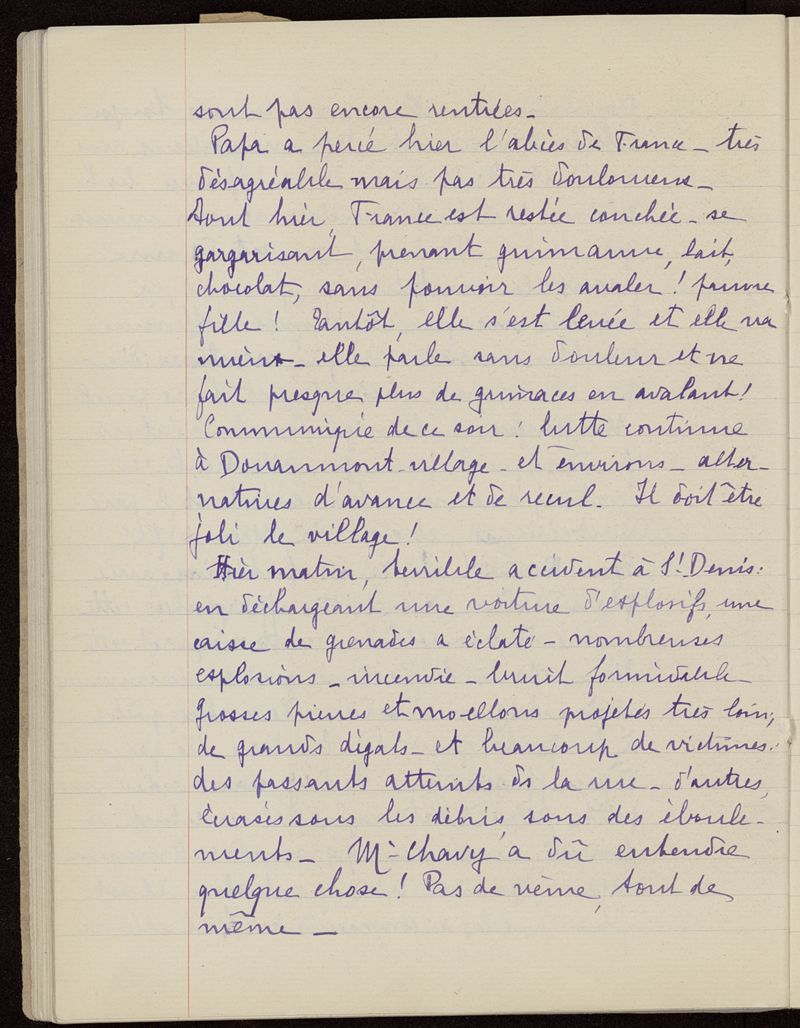 sont pas encore rentrées_
Papa a percé hier l'abcès de France_ très
désagréable mais pas très douloureux_
Tout hier, France est restée couchée_ se
gargarisant, prenant guimauve, lait,
chocolat, sans pouvoir les avaler ! pauvre
fille ! Tantôt, elle s'est levée et elle va
mieux_ elle parle sans douleur et ne
fait presque plus de grimaces en avalant !
Communiqué de ce soir : lutte continue
à Douaumont-village_ et environs_ alter-
natives d'avance et de recul. Il doit être
joli le village !
Hier matin, terrible accident à St Denis :
en déchargeant une voiture d'explosifs, une
caisse de grenades a éclaté_ nombreuses
explosions_ incendie_ bruit formidable_
Grosses pierres et moellons projetés très loin,
de grands dégats_ et beaucoup de victimes :
des passants atteints ds la rue_ d'autres,
écrasés sous les débris, sous des éboule-
ments_ Mr Chavy a dû entendre
quelque chose ! Pas de veine, tout de
même_